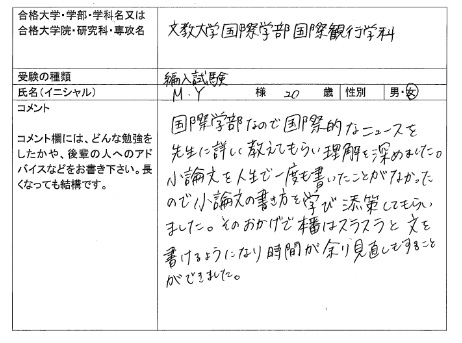 合格大学・学部・学科名又は
合格大学院・研究科・専攻名
文教大学国際学部国際観行学科
受験の種類
編入試験
氏名(イニシャル)
M.Y 様 20 歳 性別 男・女
コメント
コメント欄には、どんな勉強を
したかや、後輩の人へのアド
バイスなどをお書き下さい。長
くなっても結構です。
国際学部なので国際的なニュースを
先生に詳しく教えてもらい理解を深めました。
小論文を人生で一度も書いたことがなかった
ので小論文の書き方を学び添策してもらい
ました。そのおかげで本番はスラスラと文を
書けるようになり時間が余り見直しもすること
ができました。